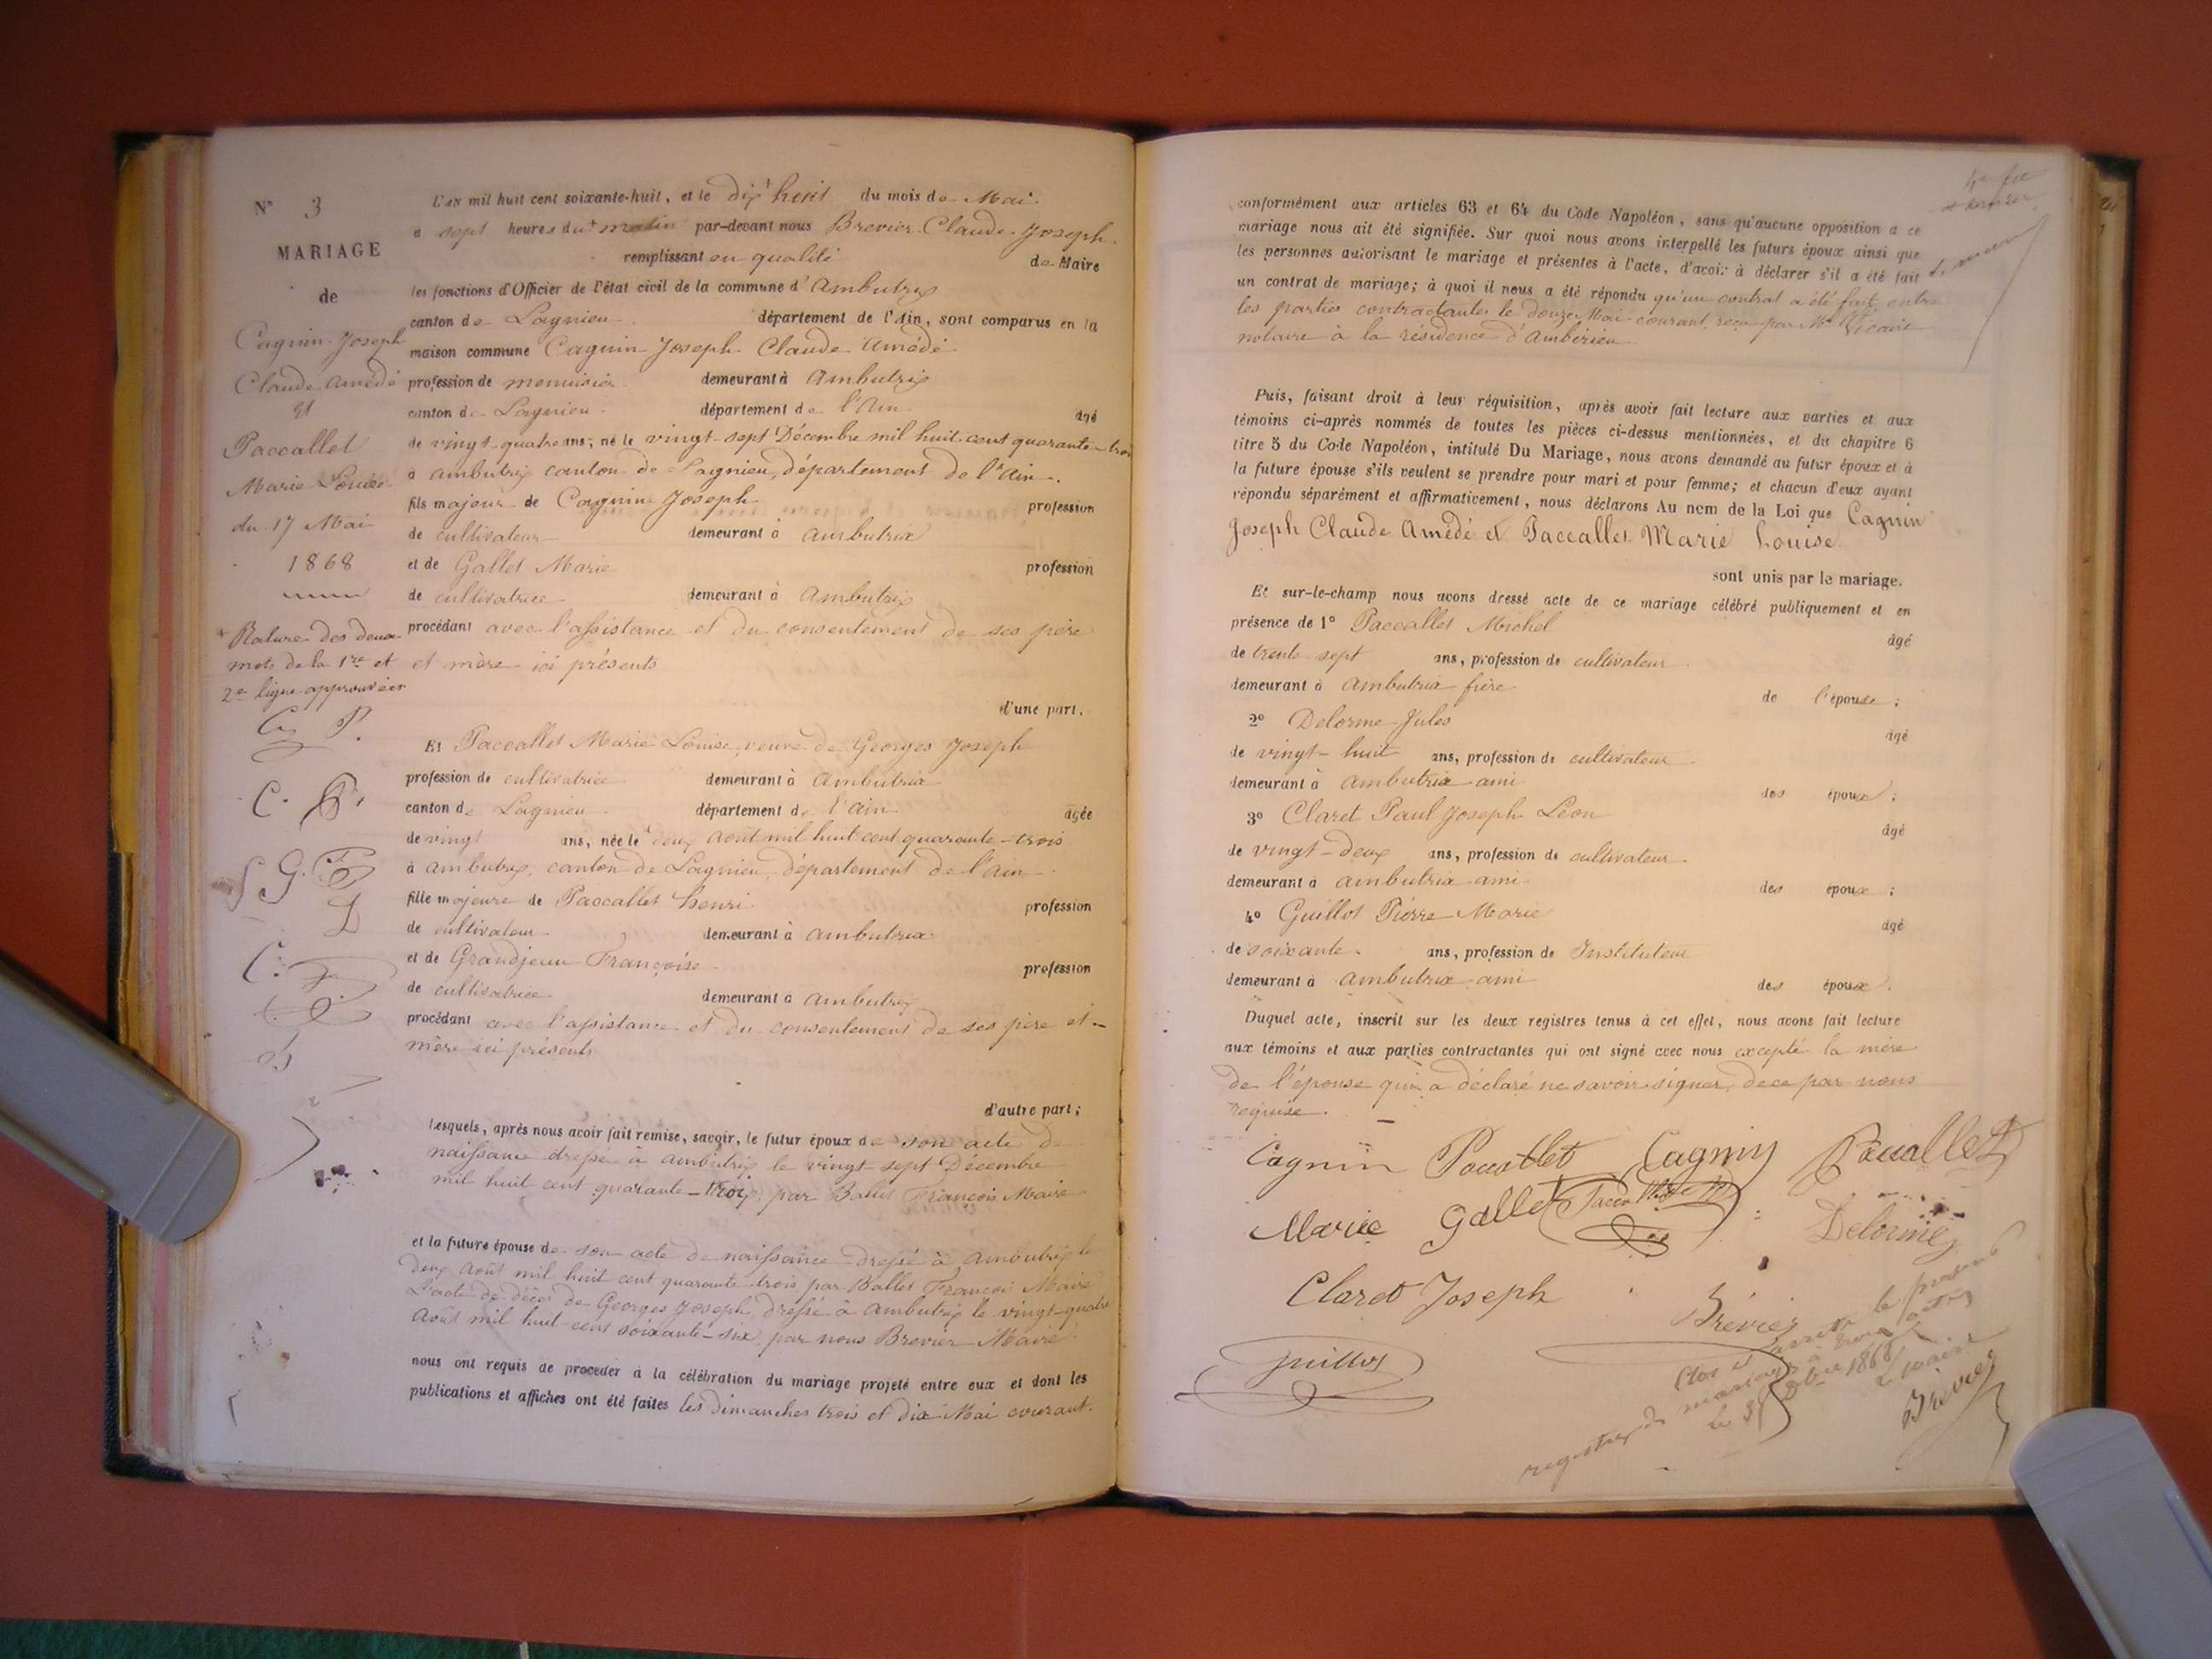 N° 3
MARIAGE
de
Cagnin Joseph
Claude Amédé
et
Paccallet
Marie Louise
du 17 Mai
1868
+ Rature des deux
mots de la 1re et
2e ligne approuvées
C. P.
C. P.
G.
C.
L'an mil huit cent soixante-huit, et le dix + huit du mois de Mai
à sept heures du + matin par-devant nous Brevier Claude Joseph
remplissant en qualité de Maire
les fonctions d'Officier de l'état civil de la commune d'Ambutrix
canton de Lagnieu département de l'Ain, sont comparus en la
maison commune Cagnin Joseph Claude Amédé
profession de menuisier demeurant à Ambutrix
canton de Lagnieu département de l'Ain âgé
de vingt-quatre ans, né le vingt-sept Décembre mil huit cent quarante-trois
à ambutrix canton de Lagnieu, département de l'Ain.
fils majeur de Cagnin Joseph profession
de cultivateur demeurant à ambutrix
et de Gallet Marie profession
de cultivatrice demeurant à Ambutrix
procédant avec l'assistance et du consentement de ses père
et mère ici présents
d'une part.
Et Paccallet Marie Louise, veuve de Georges Joseph
profession de cultivatrice demeurant à Ambutrix
canton de Lagnieu département de l'ain âgée
de vingt ans, née le deux août mil huit cent quarante-trois
à ambutrix, canton de Lagnieu, département de l'ain
fille majeure de Paccallet henri profession
de cultivateur demeurant à ambutrix
et de Grandjean Françoise profession
de cultivatrice demeurant à ambutrix
procédant avec l'assistance et du consentement de ses père et
mère ici présents
d'autre part;
Lesquels, après nous avoir fait remise, savoir, le futur époux de son acte de
naissance dressé à ambutrix le vingt-sept Décembre
mil huit cent quarante-trois, par Ballet François Maire
et la future épouse de son acte de naissance dressé à Ambutrix le
deux Août mil huit cent quarante trois par Ballet François Maire
L'acte de décès de Georges Joseph dressé à ambutrix le vingt-quatre
Août mil huit cent soixante-six par nous Brevier Maire
nous ont requis de procéder à la célébration du mariage projeté entre eux et dont les
publications et affiches ont été faites les dimanches trois et dix Mai courant.
conformément aux articles 63 et 64 du Code Napoléon, sans qu'aucune opposition à ce
mariage nous ait été signifiée. Sur quoi nous avons interpellé les futurs époux ainsi que
les personnes autorisant le mariage et présentes à l'acte, d'avoir à déclarer s'il a été fait
un contrat de mariage; à quoi il nous a été répondu qu'un contrat a été fait entre
les parties contractantes le douze Mai courant, reçu par Me
notaire à la résidence d'Ambérieu
Puis, faisant droit à leur réquisition, après avoir fait lecture aux parties et aux
témoins ci-après nommés de toutes les pièces ci-dessus mentionnées, et du chapitre 6
titre 5 du Code Napoléon, intitulé Du Mariage, nous avons demandé au futur époux et à
la future épouse s'ils veulent se prendre pour mari et pour femme; et chacun d'eux ayant
répondu séparément et affirmativement, nous déclarons Au nom de la Loi que Cagnin
Joseph Claude Amédé et Paccallet Marie Louise
sont unis par le mariage.
Et sur-le-champ nous avons dressé acte de ce mariage célébré publiquement et en
présence de 1° Paccallet Michel âgé
de trente sept ans, profession de cultivateur
demeurant à ambutrix frère de l'épouse;
2° Delorme Jules âgé
de vingt-huit ans, profession de cultivateur
demeurant à ambutrix ami des époux;
3° Claret Paul Joseph Léon âgé
de vingt-deux ans, profession de cultivateur
demeurant à ambutrix ami des époux;
4° Guillot Pierre Marie âgé
de soixante ans, profession de Instituteur
demeurant à ambutrix ami des époux.
Duquel acte, inscrit sur les deux registres tenus à cet effet, nous avons fait lecture
aux témoins et aux parties contractantes qui ont signé avec nous excepté la mère
de l'épouse qui a déclaré ne savoir signer, de ce par nous
requise.
Cagnin Paccallet Cagnin Paccallet
Marie Gallet Delorme
Claret Joseph Brévier
Guillot
Clos et arrêté le présent
registre de mariage à trois actes
le 31 Xbre 1868
Le maire
Brévier